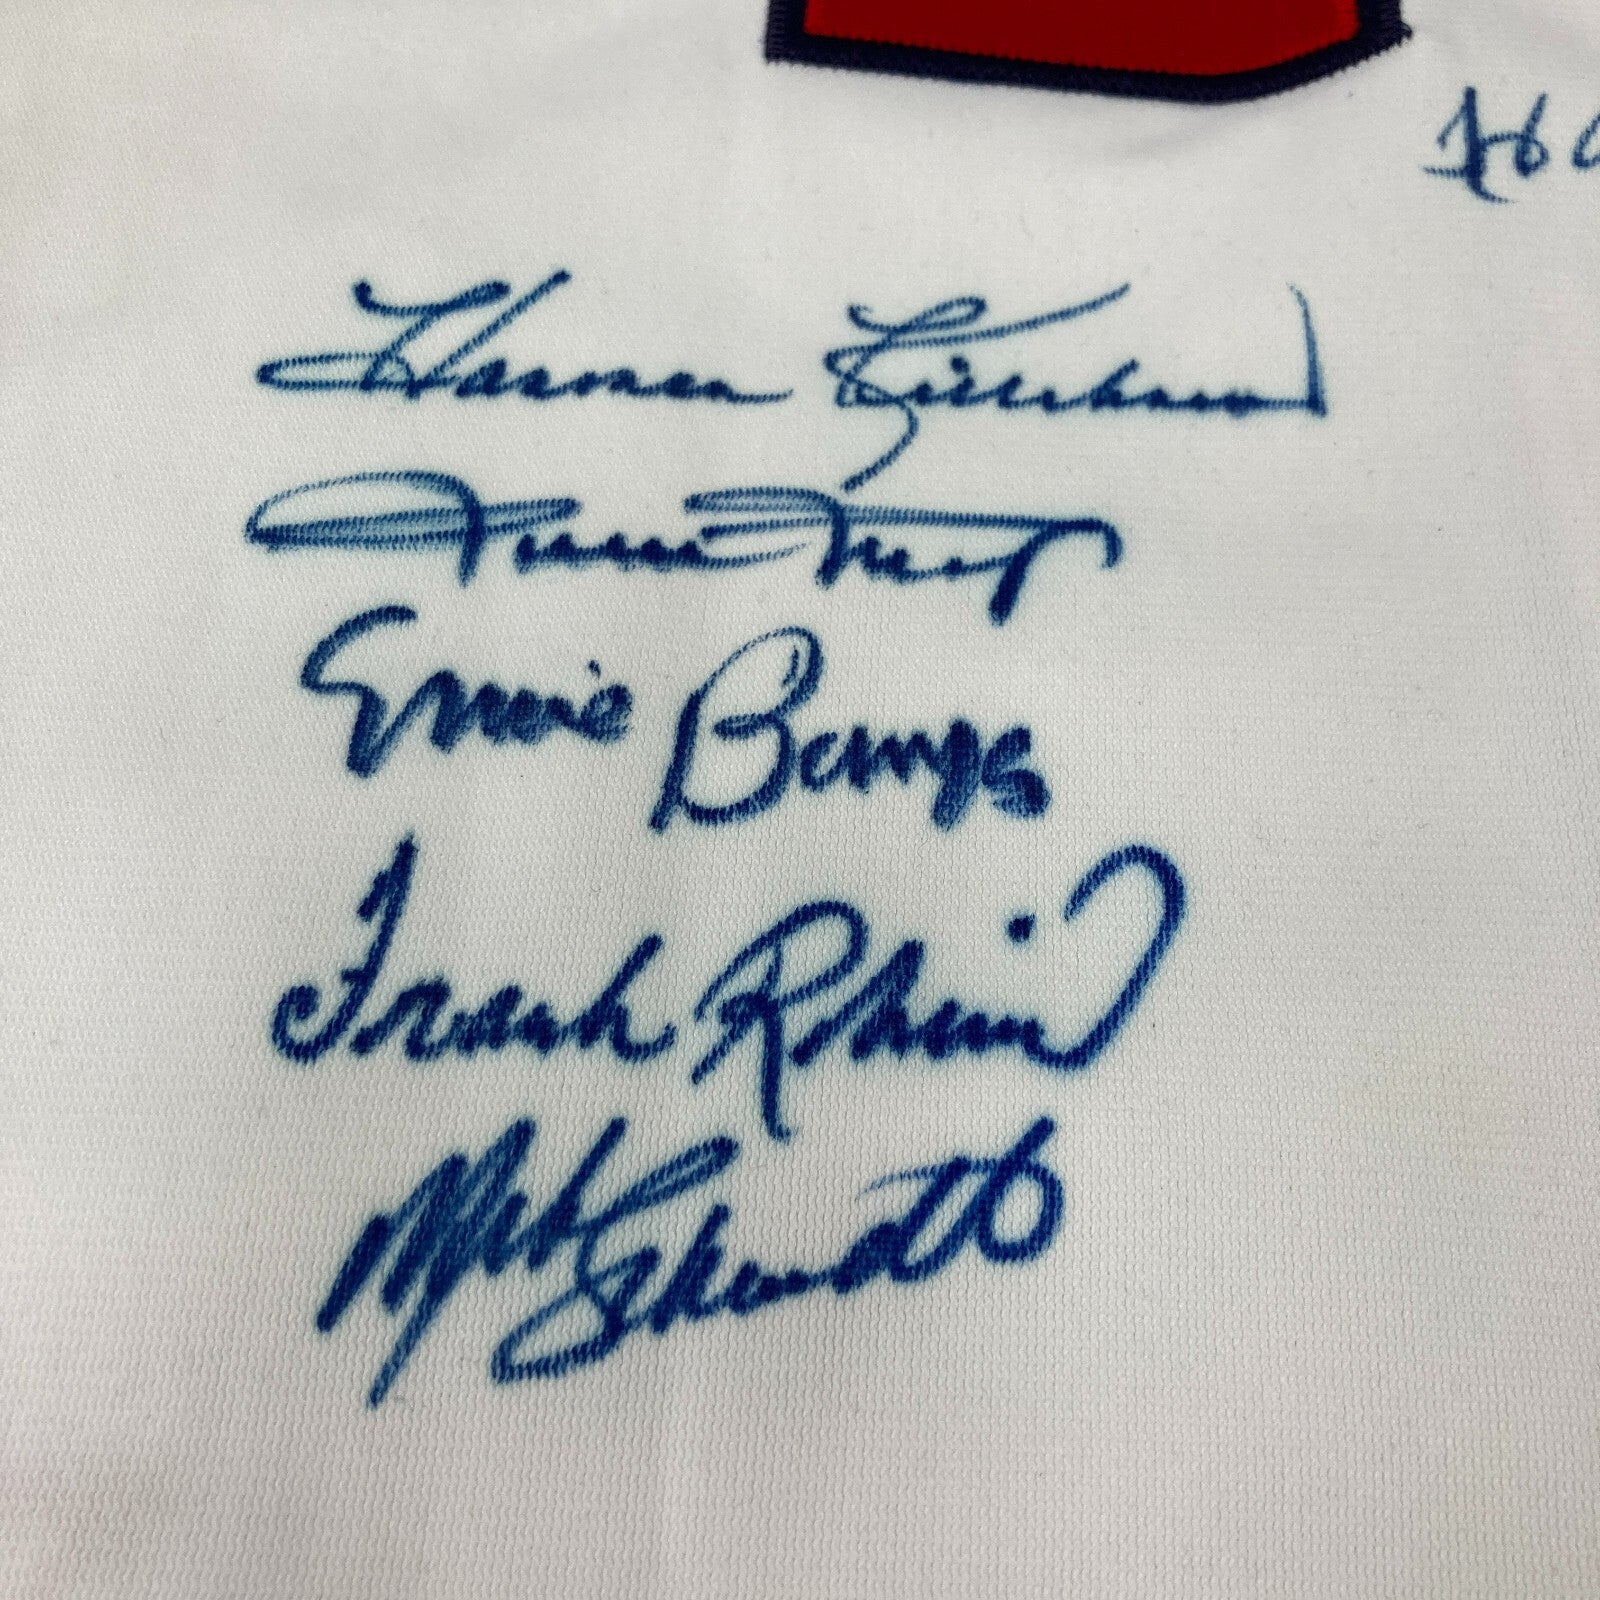 Harmon Killebrew
Willie Mays
Ernie Banks
Frank Robinson
Mike Schmidt